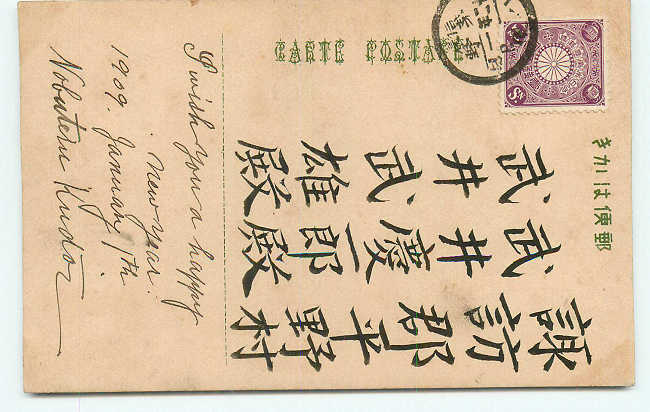 郵便はかき
CARTE POSTALE
諏訪郡平野村
武井慶一郎殿
武井武雄殿
I wish you a happy
new year.
1909. January 1th
Nobuteru Kudo